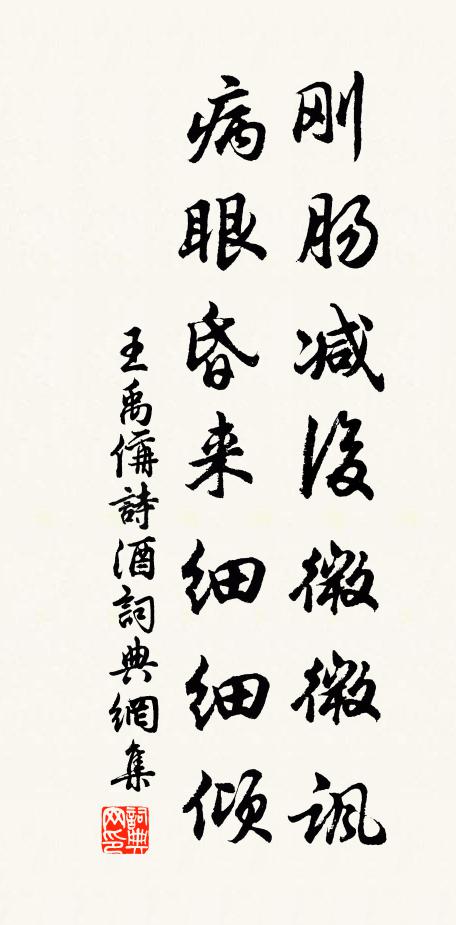 刚肠减後微微讽
病眼昏来细细倾
王禹偁詩酒詞典網集
詞典网印